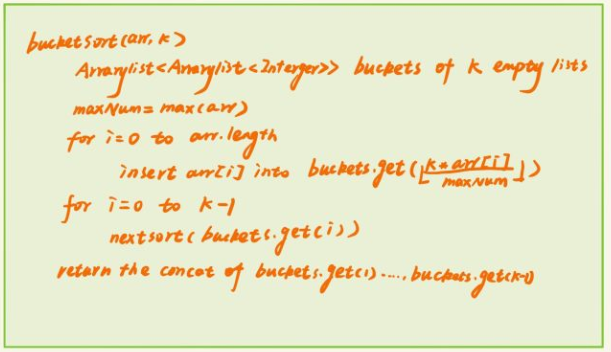 bucketsort(arr, k)
Arraylist<Anarylist<Interger>> buckets of k empty lists
maxNum = max(arr)
for i=0 to arr.length
insert arr[i] into buckets.get(⌊k*arr[i]/maxNum⌋)
for i=0 to k-1
nextsort(buckets.get(i))
return the concat of buckets.get(1)....,buckets.get(k-1)